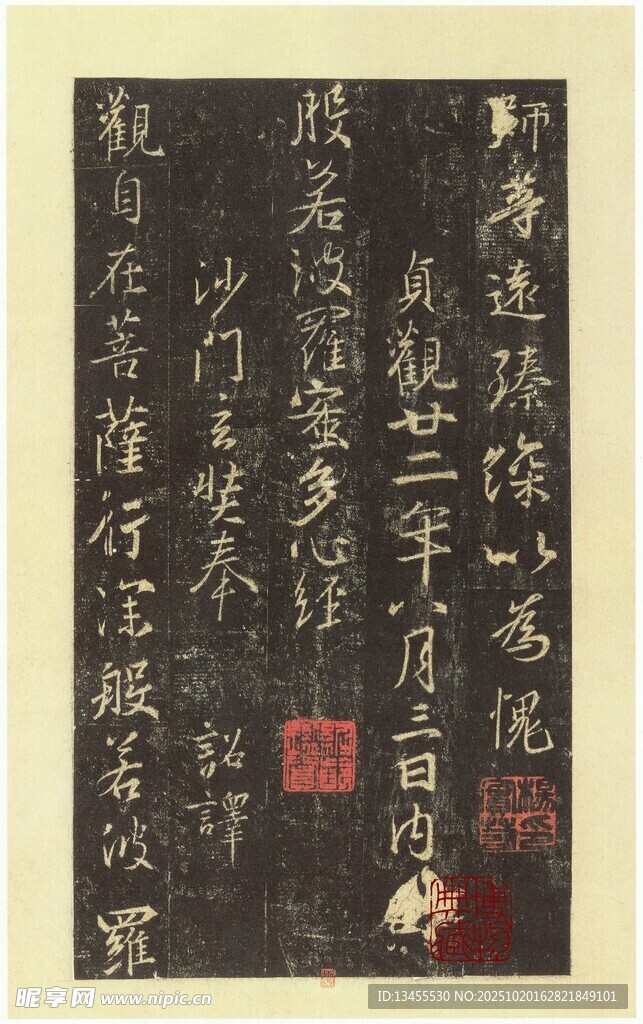 師等遠臻深以為愧
貞觀廿二年八月三日內
般若波羅蜜多心經
沙門玄奘奉 詔譯
觀自在菩薩行深般若波羅
昵享网 www.nipic.cn
ID:13455530 NO:20251020162821849101